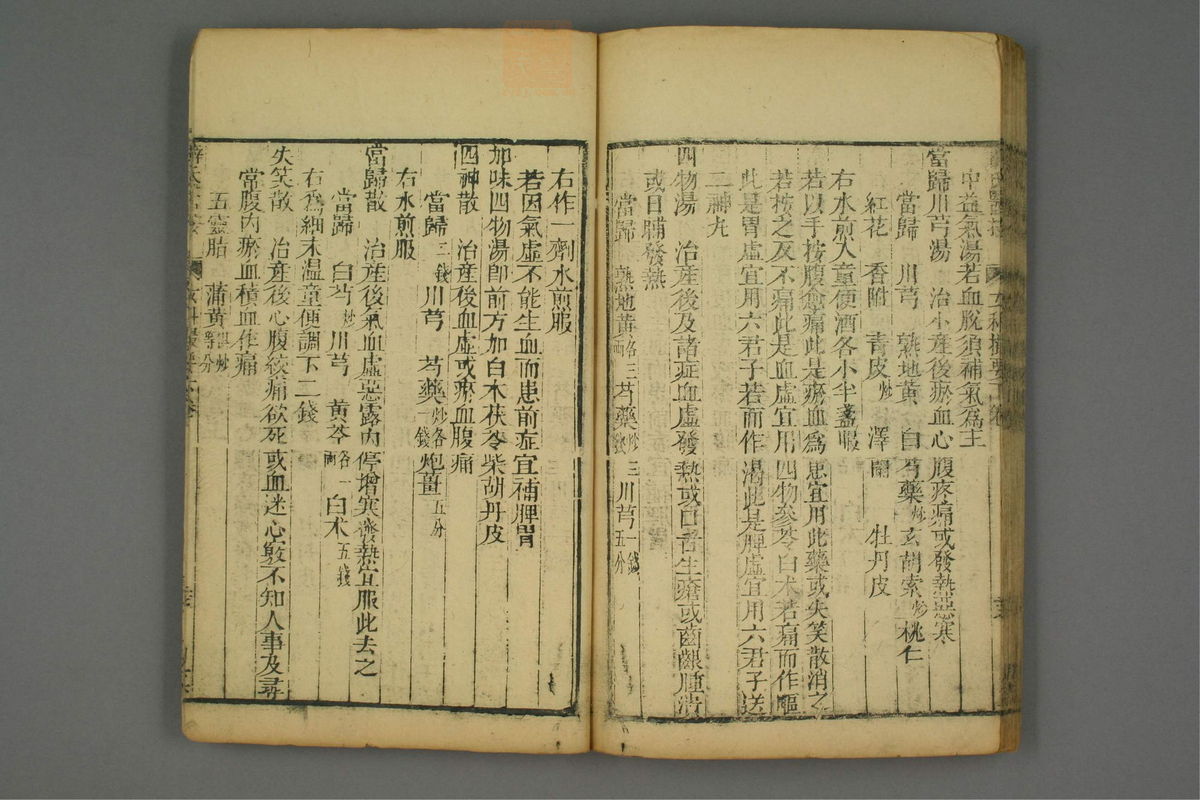 中益氣湯若血脫須補氣爲主
當歸川芎湯　治小產後瘀血心腹疼痛或發熱惡寒
當歸　川芎　熟地黄　白芍藥炒　玄胡索炒　桃仁
紅花　香附　青皮炒　澤蘭　牡丹皮
右水煎入童便酒各小半盞服
若以手按腹愈痛此是瘀血爲患宜用此藥或失笑散消之
若按之反不痛此是血虛宜用四物參苓白朮若痛而作嘔
此是胃虛宜用六君子若而作瀉此是脾虛宜用六君子送
二神丸
四物湯　治產後及諸症血虛發熱或口舌生瘡或齒齦腫潰
或日晡發熱
當歸　熟地黄各三兩　芍藥炒三錢　川芎一錢五分
右作一劑水煎服
若因氣虛不能生血而患前症宜補脾胃
加味四物湯卽前方加白朮茯苓柴胡丹皮
四神散　治產後血虛或瘀血腹痛
當歸三錢　川芎　芍藥炒各一錢　炮薑五分
右水煎服
當歸散　治產後氣血虛惡露內停增寒發熱宜服此去之
當歸　白芍炒　川芎　黄芩各一兩　白朮五錢
右爲細末温童便調下二錢
失笑散　治產後心腹絞痛欲死或血迷心竅不知人事及尋
常腹内瘀血積血作痛
五靈脂　蒲黄俱炒等分